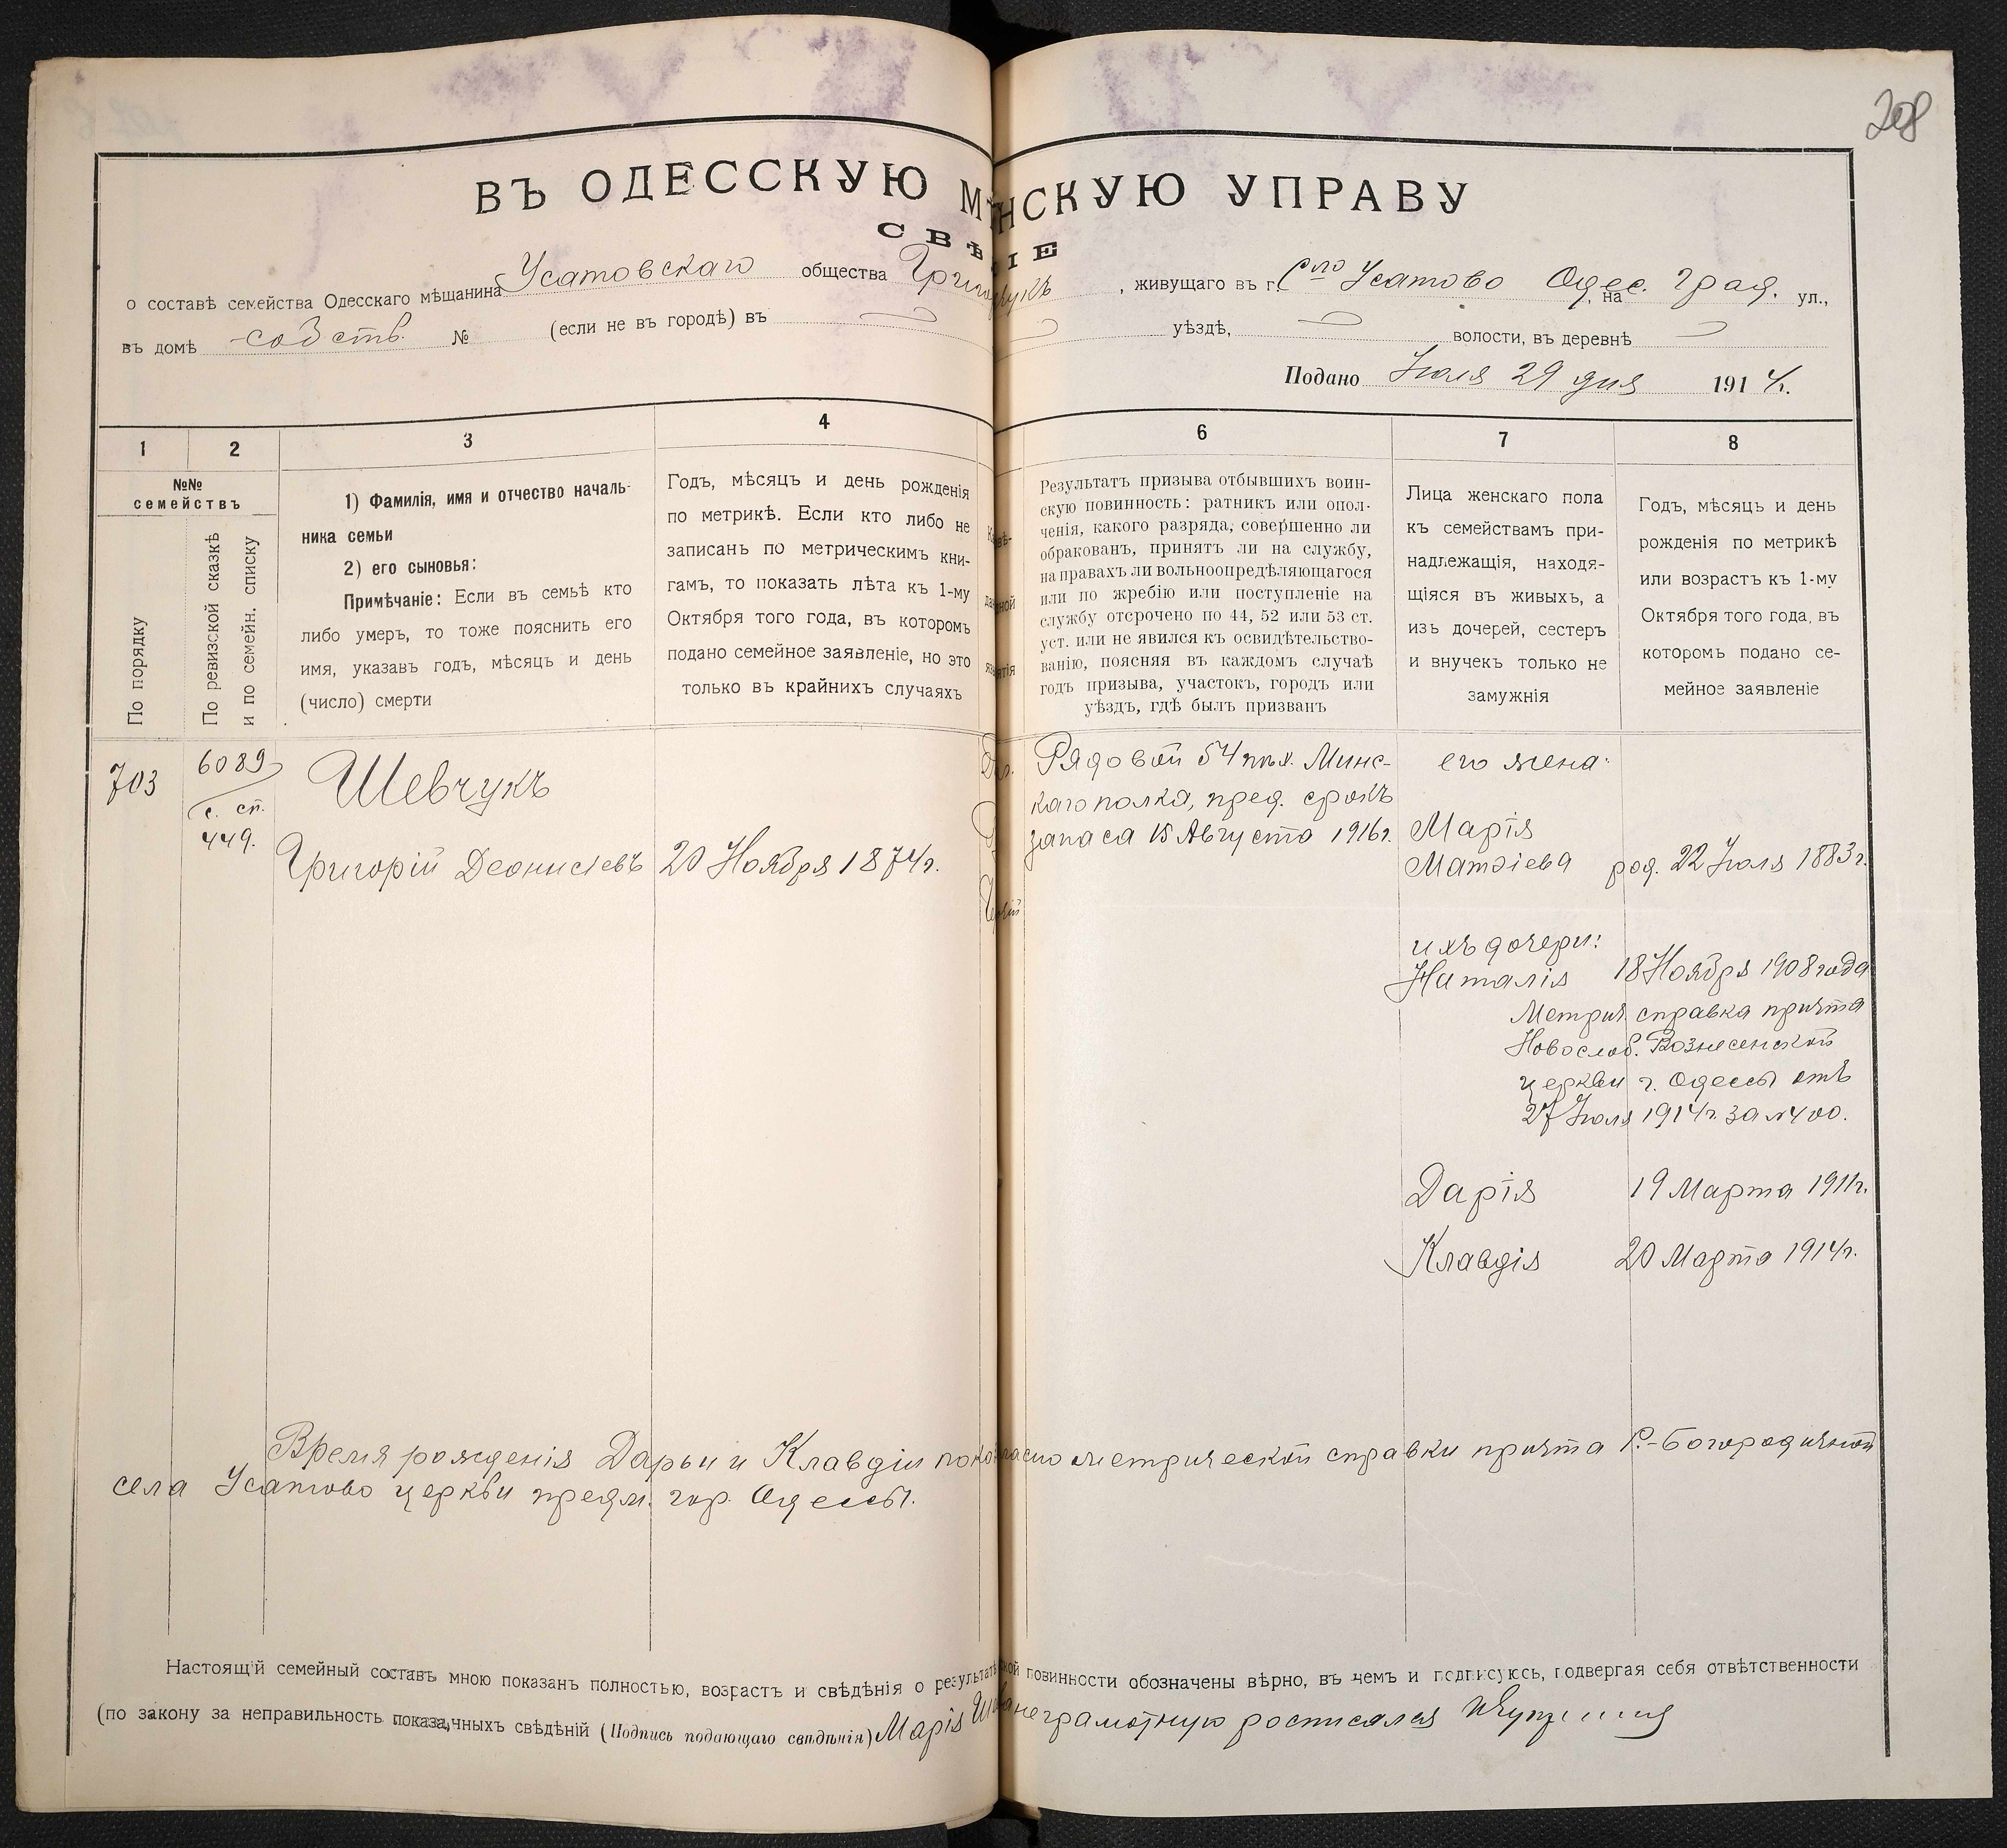 208
ВЪ ОДЕССКУЮ М НСКУЮ УПРАВУ
СВѢ IЕ
о составѣ семейства Одесскаго мѣщанина Усатовскаго общества живущаго въ г. Сло Усатово Одес. Град. на ул.,
въ домѣ собств. № (если не въ городѣ) въ уѣздѣ, волости, въ деревнѣ
Подано Іюля 29 дня 1914 г.
1 2 3 4 6 7 8
№№
семействъ
По порядку
По ревизской сказкѣ
и по семейн. списку
1) Фамилія, имя и отчество началь-
ника семьи
2) его сыновья:
Примѣчаніе: Если въ семьѣ кто
либо умеръ, то тоже пояснить его
имя, указавъ годъ, мѣсяцъ и день
(число) смерти
Годъ, мѣсяцъ и день рожденія
по метрикѣ. Если кто либо не
записанъ по метрическимъ кни-
гамъ, то показать лѣта къ 1-му
Октября того года, въ которомъ
подано семейное заявленіе, но это
только въ крайнихъ случаяхъ
Результатъ призыва отбывшихъ воин-
скую повинность: ратникъ или опол-
ченія, какого разряда, совершенно ли
обракованъ, принятъ ли на службу,
на правахъ ли вольноопредѣляющагося
или по жребію или поступленіе на
службу отсрочено по 44, 52 или 53 ст.
уст. или не явился къ освидѣтельство-
ванію, поясняя въ каждомъ случаѣ
годъ призыва, участокъ, городъ или
уѣздъ, гдѣ былъ призванъ
Лица женскаго пола
къ семействамъ при-
надлежащія, находя-
щіяся въ живыхъ, а
изъ дочерей, сестеръ
и внучекъ только не
замужнія
Годъ, мѣсяцъ и день
рожденія по метрикѣ
или возрастъ къ 1-му
Октября того года, въ
которомъ подано се-
мейное заявленіе
703
6089
с. сп.
449.
Шевчукъ
Григорій Деонисіевъ
20 Ноября 1874 г.
Рядовой 54 пѣх. Минс-
каго полка, пред. срокъ
запаса 15 Августа 1916 г.
его жена:
Марія
Матвіева род. 22 Іюля 1883 г.
ихъ дочери:
Наталія 18 Ноября 1908 года
Метрич. справка причта
Новослоб. Вознесенской
церкви г. Одессы отъ
27 Іюля 1914 г. за № 400.
Дарія 19 Марта 1911 г.
Клавдія 20 Марта 1914 г.
Время рожденія Дарьи и Клавдіи метрической справки причта Р.-Богородичной
села Усатово церкви предм. гор. Одессы.
Настоящій семейный составъ мною показанъ полностью, возрастъ и свѣдѣнія о результатѣ повинности обозначены вѣрно, въ чемъ и подписуюсь, подвергая себя отвѣтственности
(по закону за неправильность показанныхъ свѣдѣній (Подпись подающаго свѣдѣнія) Марія неграмотную росписался